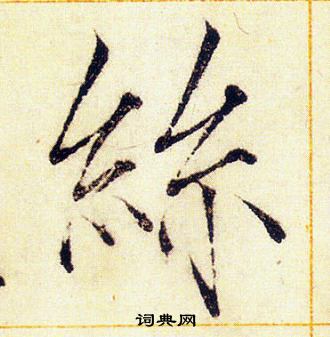 絲
词典网